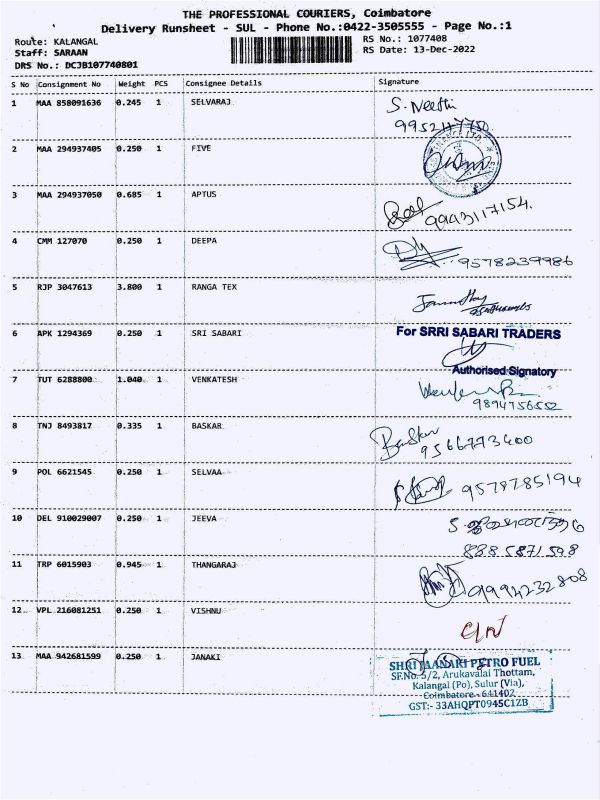 THE PROFESSIONAL COURIERS, Coimbatore
Delivery Runsheet - SUL - Phone No.:0422-3505555 - Page No.:1
Route: KALANGAL
RS No.: 1077408
Staff: SARAAN
RS Date: 13-Dec-2022
DRS No.: DCJB107740801
S No Consignment No Weight PCS Consignee Details Signature
1 MAA 858091636 0.245 1 SELVARAJ S. Neethi
2 MAA 294937405 0.250 1 FIVE
3 MAA 294937050 0.685 1 APTUS 9943117154.
4 CMM 127070 0.250 1 DEEPA 9578239986
5 RJP 3047613 3.800 1 RANGA TEX
6 APK 1294369 0.250 1 SRI SABARI For SRRI SABARI TRADERS
Authorised Signatory
7 TUT 6288800 1.040 1 VENKATESH
9894756552
8 TNJ 8493817 0.335 1 BASKAR Baskar
9566773400
9 POL 6621545 0.250 1 SELVAA 9578785194
10 DEL 910029007 0.250 1 JEEVA
8885871598
11 TRP 6015903 0.945 1 THANGARAJ 9994232808
12 VPL 216081251 0.250 1 VISHNU
13 MAA 942681599 0.250 1 JANAKI SHRI JAANAKI PETRO FUEL
SF.No. 5/2, Arukavalai Thottam,
Kalangal (Po), Sulur (Via),
Coimbatore - 641402
GST:- 33AHQPT0945C1ZB